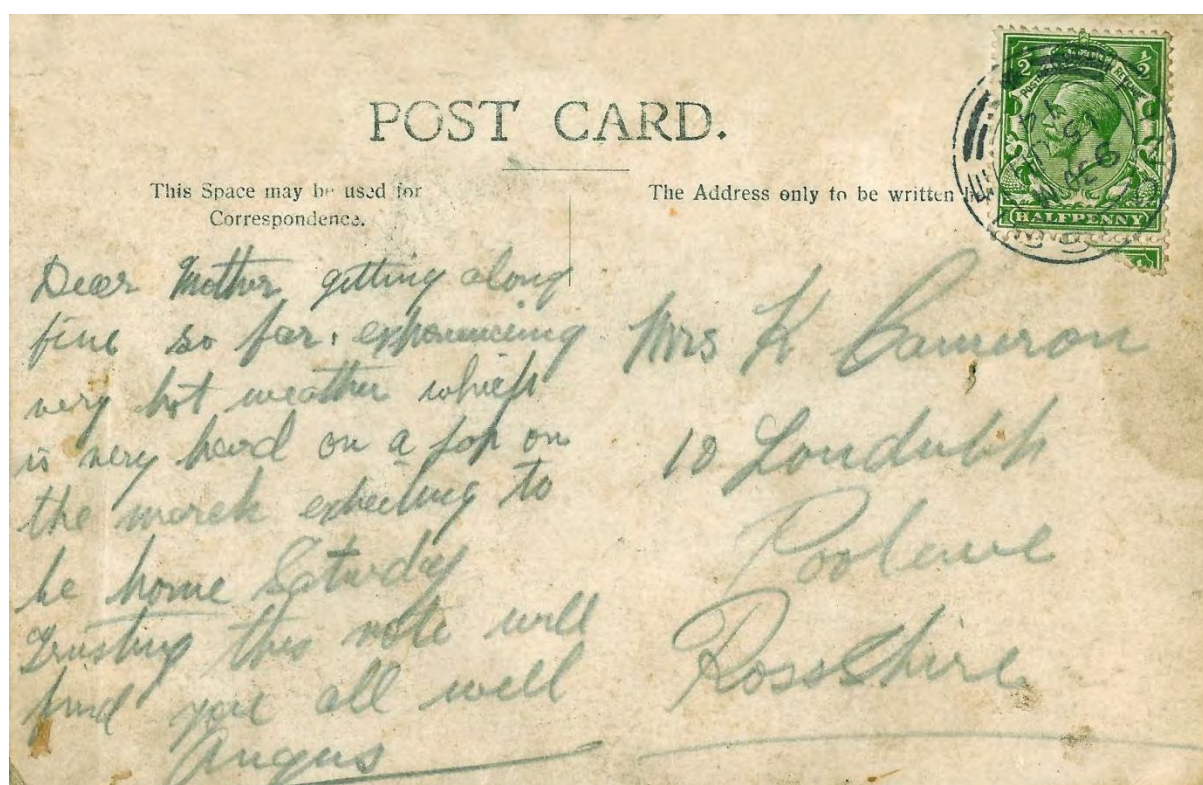 POST CARD.
This Space may be used for
Correspondence.
The Address only to be written
HALFPENNY
Dear Mother getting along
fine so far.
very hot weather which
is very hard on a on
the march to
be home Saturday
Trusting this note will
find you all well
Angus
Mrs K Cameron
10 Londubh
Poolewe
Rossshire